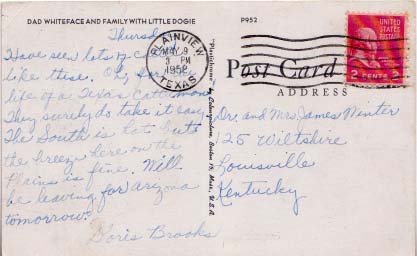 DAD WHITEFACE AND FAMILY WITH LITTLE DOGIE
P952
Thursday
Have seen lots of
like these. Oh, for the
life of a Texas Cattleman
They surely do take it easy
The South is hot, but
the breeze here on the
Plains is fine. Will
be leaving for Arizona
tomorrow.
Doris Brooks
PLAINVIEW
MAY 9
3 PM
1958
TEXAS
UNITED STATES POSTAGE
2 CENTS 2
Post Card
ADDRESS
"Plastichrome" by Colourpicture, Boston 15, Mass., U.S.A.
Dr. and Mrs James Winter
25 Wiltshire
Louisville
Kentucky